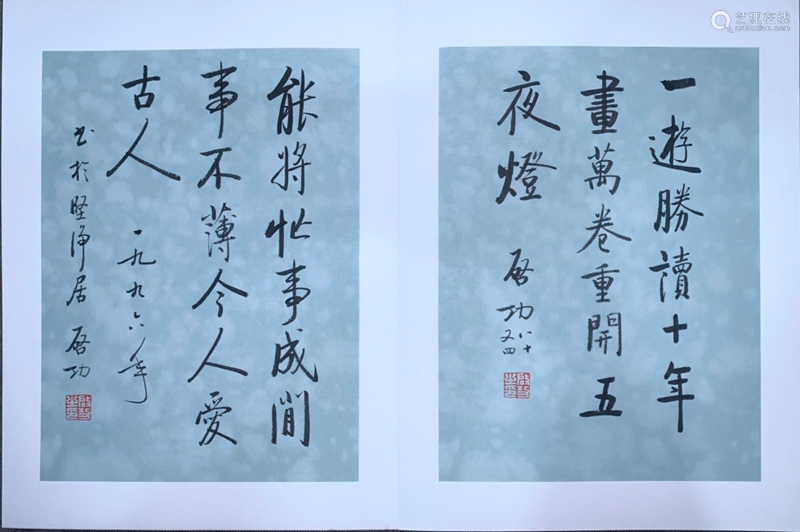 一遊勝讀十年
畫萬卷重開五
夜燈
启功
八十
又四
能將忙事成閒
事不薄今人愛
古人
一九九六年
书於坚净居 启功